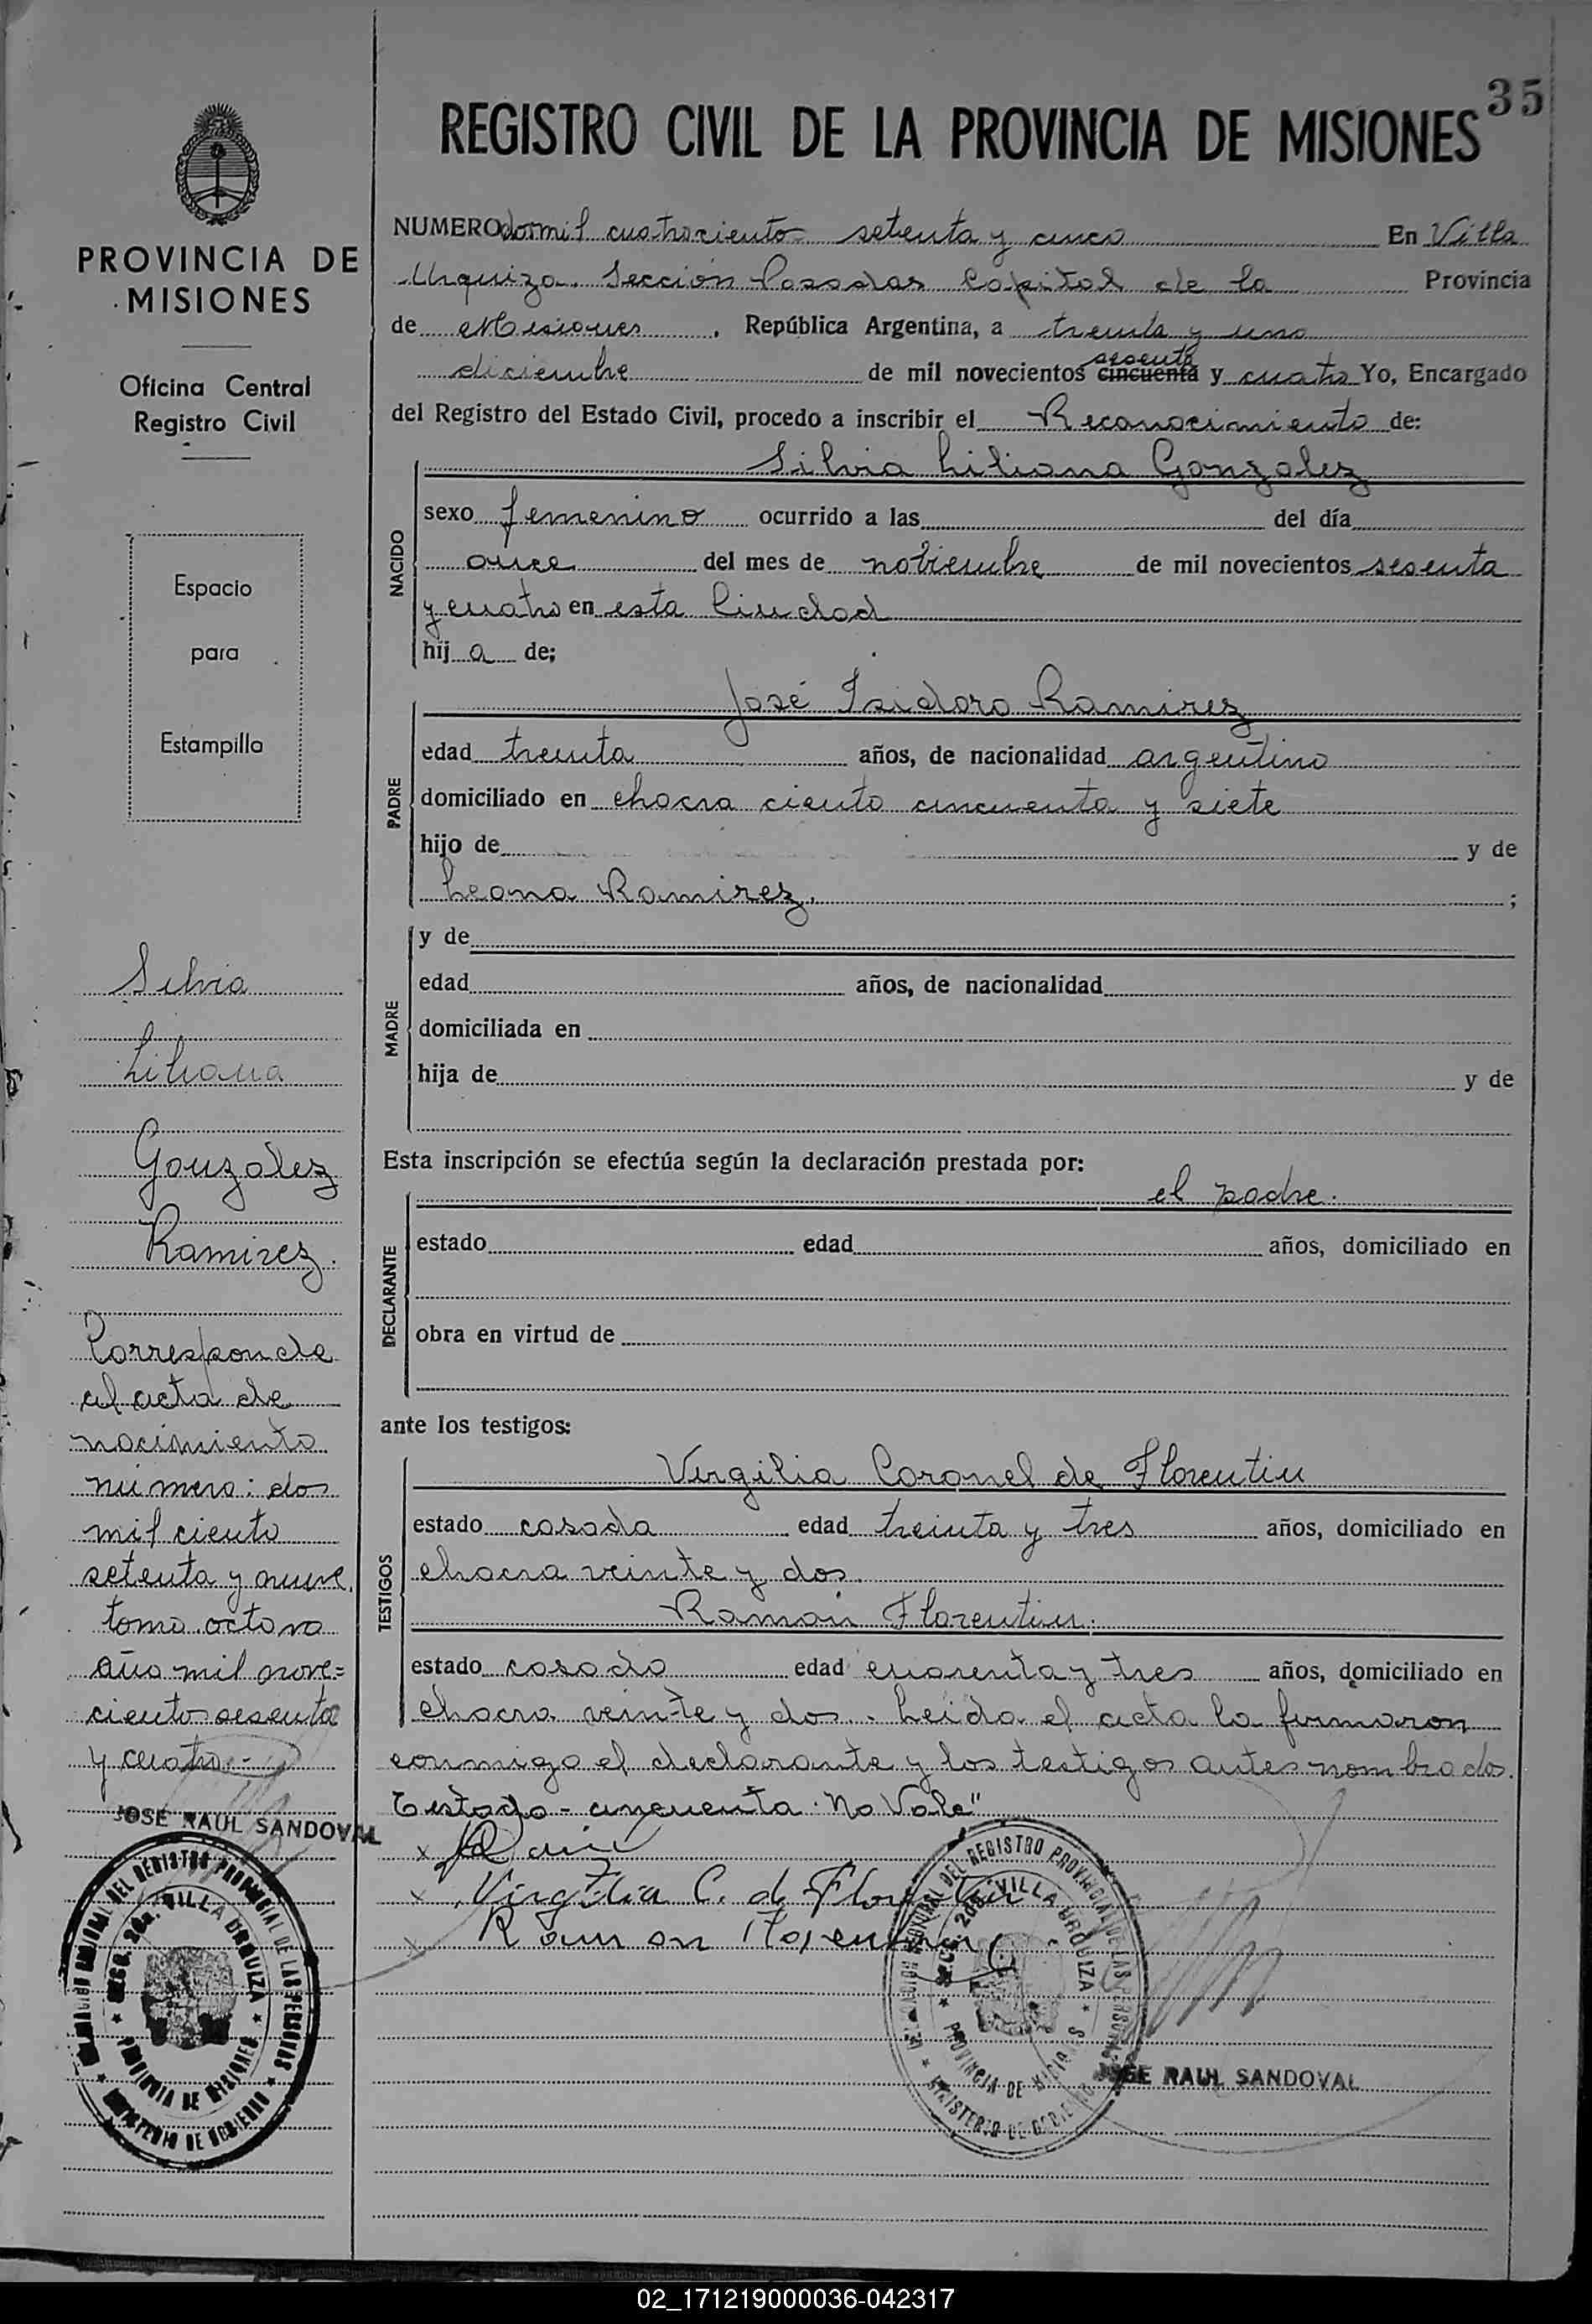 35
REGISTRO CIVIL DE LA PROVINCIA DE MISIONES
PROVINCIA DE
MISIONES
Oficina Central
Registro Civil
Espacio
para
Estampilla
Silvia
Liliana
Gonzalez
Ramirez.
Corresponde
al acta de
nacimiento
número: dos
mil ciento
setenta y nueve,
tomo octavo
año mil nove=
ciento sesenta
y cuatro.-
JOSE RAUL SANDOVAL
NUMERO dosmil cuatrociento setenta y cinco En Villa
Urquiza. Sección Posadas Capital de la Provincia
de Misiones, República Argentina, a treinta y uno
diciembre de mil novecientos sesenta cincuenta y cuatro Yo, Encargado
del Registro del Estado Civil, procedo a inscribir el Reconocimiento de:
NACIDO
Silvia Liliana Gonzalez
sexo femenino ocurrido a las del día
once del mes de nobiembre de mil novecientos sesenta
y cuatro en esta Ciudad
hij a de;
PADRE
José Isidoro Ramirez
edad treinta años, de nacionalidad argentino
domiciliado en chacra ciento cincuenta y siete
hijo de y de
Leona Ramirez. ;
MADRE
y de
edad años, de nacionalidad
domiciliada en
hija de y de
Esta inscripción se efectúa según la declaración prestada por:
DECLARANTE
el padre.
estado edad años, domiciliado en
obra en virtud de
ante los testigos:
TESTIGOS
Virgilia Coronel de Florentin
estado casada edad treinta y tres años, domiciliado en
chacra veinte y dos.
Ramon Florentin.
estado casado edad cuarenta y tres años, domiciliado en
chacra veinte y dos.. Leida el acta la firmaron
conmigo el declarante y los testigos antes nombrados.
Testado - cincuenta. No Vale"
Virgilia C. d. Florentin
Ramon Florentin
DEL REGISTRO PROVINCIAL DE LAS PERSONAS
SECC. 2da. VILLA URQUIZA
PROVINCIA DE MISIONES
MINISTERIO DE GOBIERNO
DEL REGISTRO PROVINCIAL DE LAS PERSONAS
SECC. 2da. VILLA URQUIZA
PROVINCIA DE MISIONES
MINISTERIO DE GOBIERNO
JOSE RAUL SANDOVAL
02_171219000036-042317